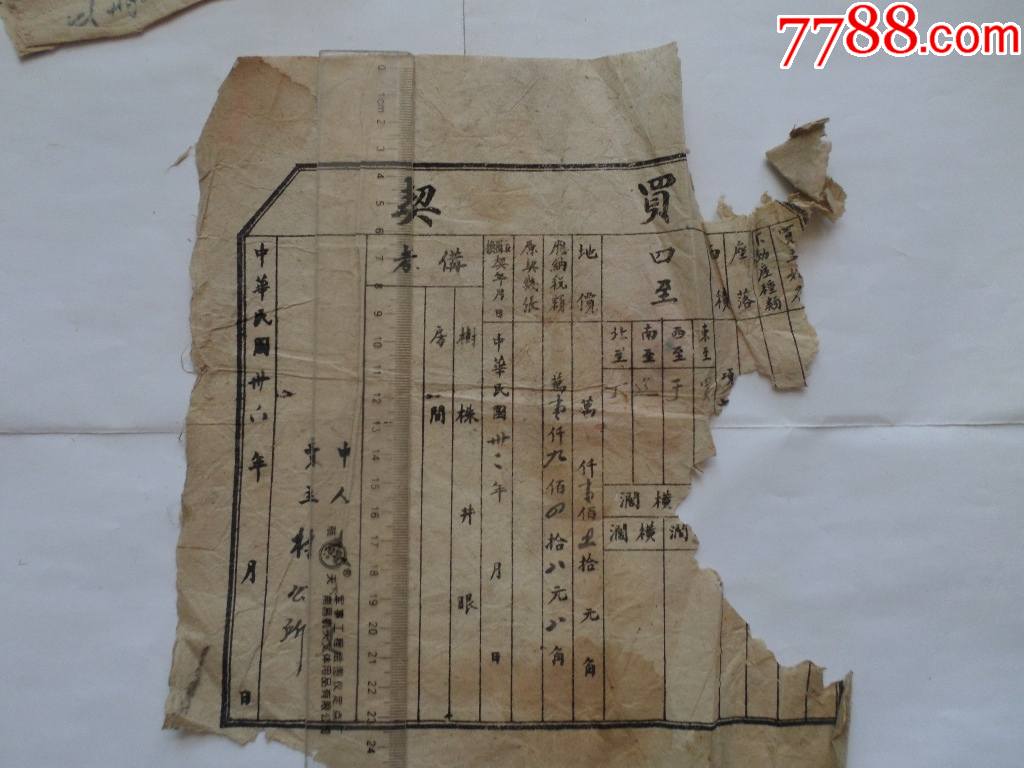 7788.com
買契
買主姓
不動產種類
座落
四至
東至
西至 于
南至
北至
橫濶
橫濶
地價 萬仟壹佰五拾元角
應納稅額 萬壹仟九佰四拾八元八角
原契幾張
契年月日 中華民國卅二年月日
備考
樹株井眼
房間
中人
賣主 村公所
中華民國卅六年月日
0 1cm 2 3 4 5 6 7 8 9 10 11 12 13 14 15 16 17 18 19 20 21 22 23 24